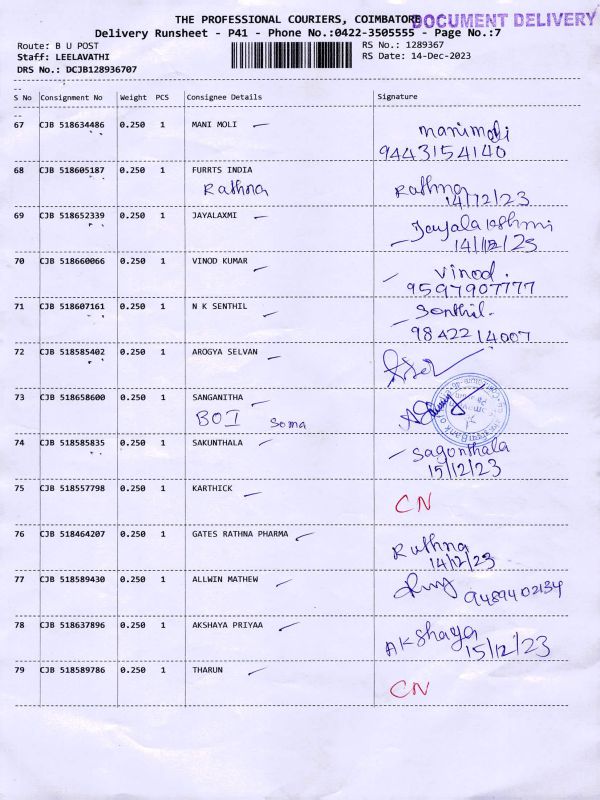 THE PROFESSIONAL COURIERS, COIMBATORE
DOCUMENT DELIVERY
Delivery Runsheet - P41 - Phone No.:0422-3505555 - Page No.:7
Route: B U POST RS No.: 1289367
Staff: LEELAVATHI RS Date: 14-Dec-2023
DRS No.: DCJB128936707
S No Consignment No Weight PCS Consignee Details Signature
67 CJB 518634486 0.250 1 MANI MOLI manimoli
9443154140
68 CJB 518605187 0.250 1 FURRTS INDIA
Rathna Rathna
14/12/23
69 CJB 518652339 0.250 1 JAYALAXMI Jayalakshmi
14/12/23
70 CJB 518660066 0.250 1 VINOD KUMAR Vinod.
9597907777
71 CJB 518607161 0.250 1 N K SENTHIL Senthil.
9842214007
72 CJB 518585402 0.250 1 AROGYA SELVAN
73 CJB 518658600 0.250 1 SANGANITHA
BOI Soma
74 CJB 518585835 0.250 1 SAKUNTHALA Sagonthala
15/12/23
75 CJB 518557798 0.250 1 KARTHICK
CN
76 CJB 518464207 0.250 1 GATES RATHNA PHARMA Ruthna
14/12/23
77 CJB 518589430 0.250 1 ALLWIN MATHEW 9489402134
78 CJB 518637896 0.250 1 AKSHAYA PRIYAA Akshaya
15/12/23
79 CJB 518589786 0.250 1 THARUN
CN